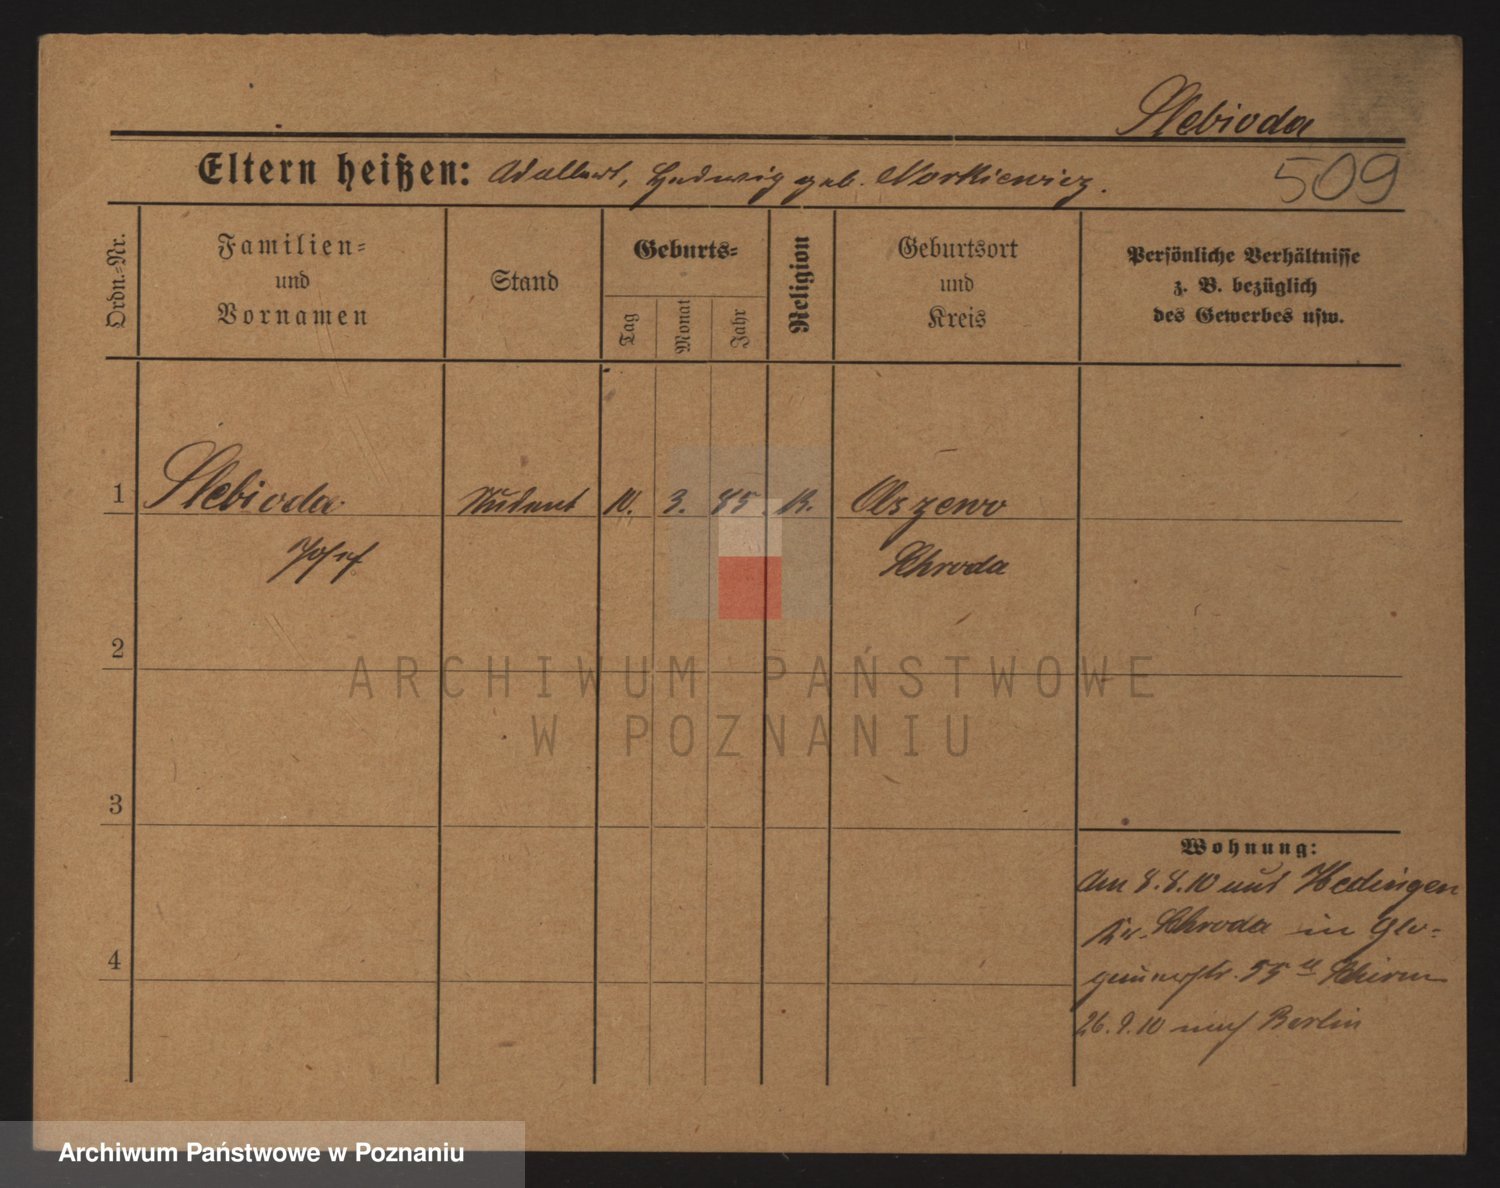 Slebioda
509
Eltern heißen: Adalbert, Hedwig geb. Norkiewicz.
Ordn.=Nr.
Familien=
und
Vornamen
Stand
Geburts=
Tag
Monat
Jahr
Religion
Geburtsort
und
Kreis
Persönliche Verhältnisse
z. B. bezüglich
des Gewerbes usw.
1 Slebioda Student 10. 3. 85. K. Olszewo
Josef Schroda
2
3
4
Wohnung:
Am 8.8.10 aus Hedingen
Kr. Schroda in Glo-
gauerstr. 55 II Schirm
26.9.10 nach Berlin
ARCHIWUM PAŃSTWOWE
W POZNANIU
Archiwum Państwowe w Poznaniu